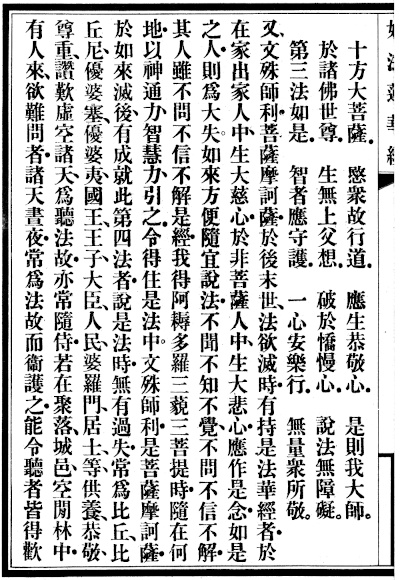 妙法蓮華經
十方大菩薩。 愍衆故行道。 應生恭敬心。 是則我大師。
於諸佛世尊。 生無上父想。 破於憍慢心。 說法無障礙。
第三法如是。 智者應守護。 一心安樂行。 無量衆所敬。
又、文殊師利菩薩摩訶薩、於後末世、法欲滅時、有持是法華經者、於
在家出家人中、生大慈心、於非菩薩人中、生大悲心、應作是念、如是
之人、則爲大失。如來方便隨宜說法、不聞不知不覺、不問不信不解、
其人雖不問不信不解是經、我得阿耨多羅三藐三菩提時、隨在何
地、以神通力、智慧力、引之、令得住是法中。文殊師利、是菩薩摩訶薩、
於如來滅後、有成就此第四法者、說是法時、無有過失、常爲比丘、比
丘尼、優婆塞、優婆夷、國王、王子、大臣、人民、婆羅門、居士等、供養恭敬、
尊重讚歎、虛空諸天、爲聽法故、亦常隨侍、若在聚落、城邑、空閒林中、
有人來、欲難問者、諸天晝夜、常爲法故、而衞護之、能令聽者、皆得歡